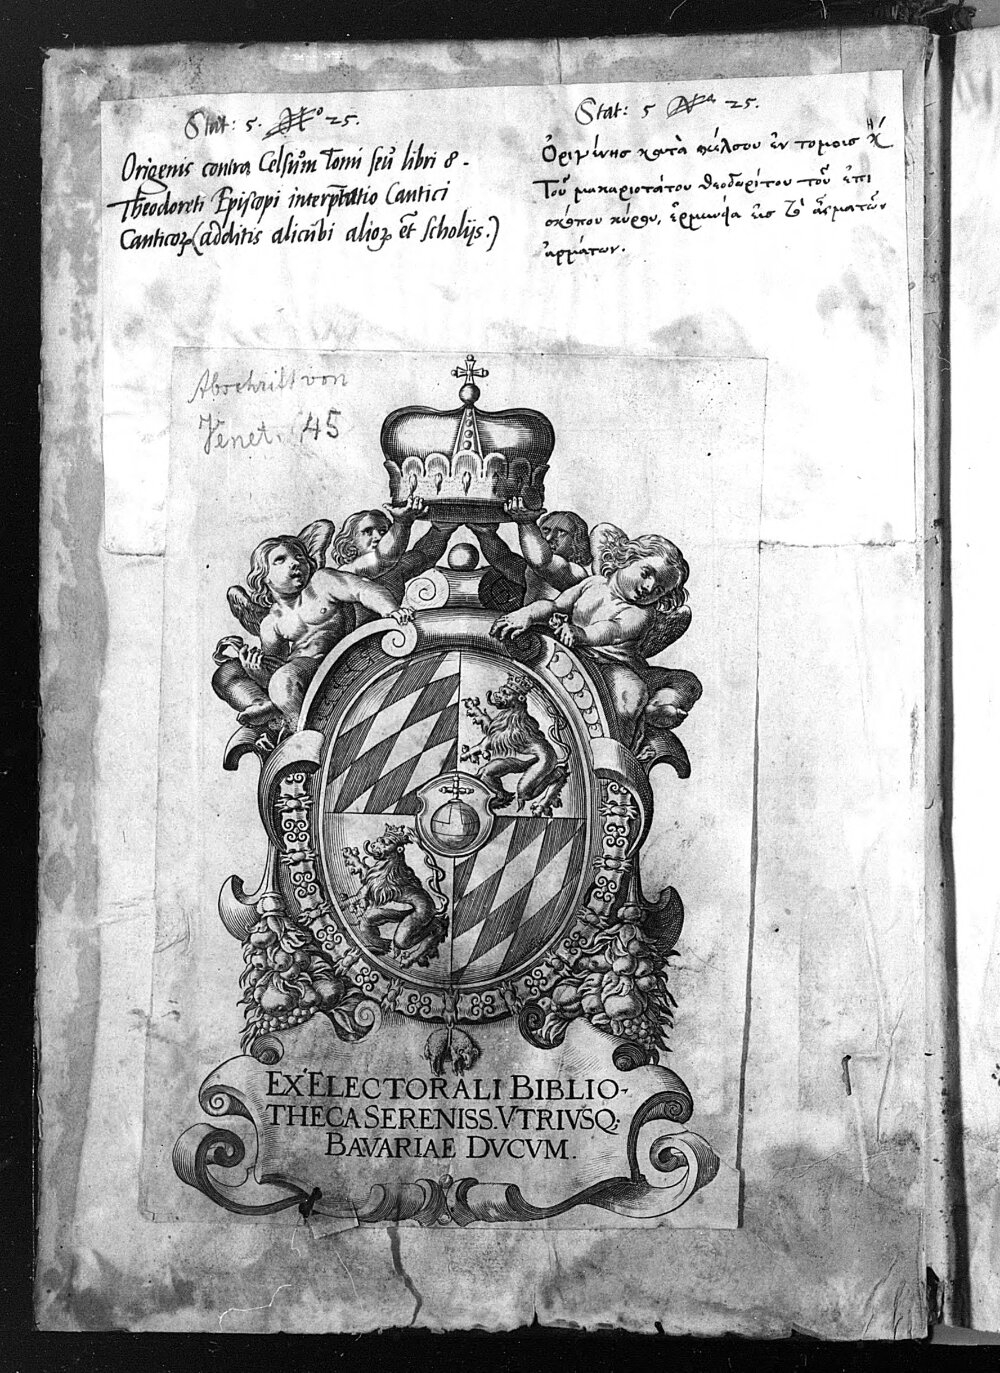 Stat: 5. N° 25.
Origenis contra Celsum Tomi seu libri 8.
Theodoreti Episcopi interptatio Cantici
Canticoꝝ (additis alicubi alioꝝ et scholijs.)
Stat: 5 N° 25.
Ὀριγένης κατὰ κέλσου ἐν τόμοις ἢ
Τοῦ μακαριωτάτου θεοδωρίτου τοῦ ἐπι
σκόπου κύρου, ἑρμηνεία εἰς τὸ ᾆσμα τῶν
ᾀσμάτων.
Abschrift von
Venet. 45
EX ELECTORALI BIBLIO-
THECA SERENISS. VTRIVSQ:
BAVARIAE DVCVM.